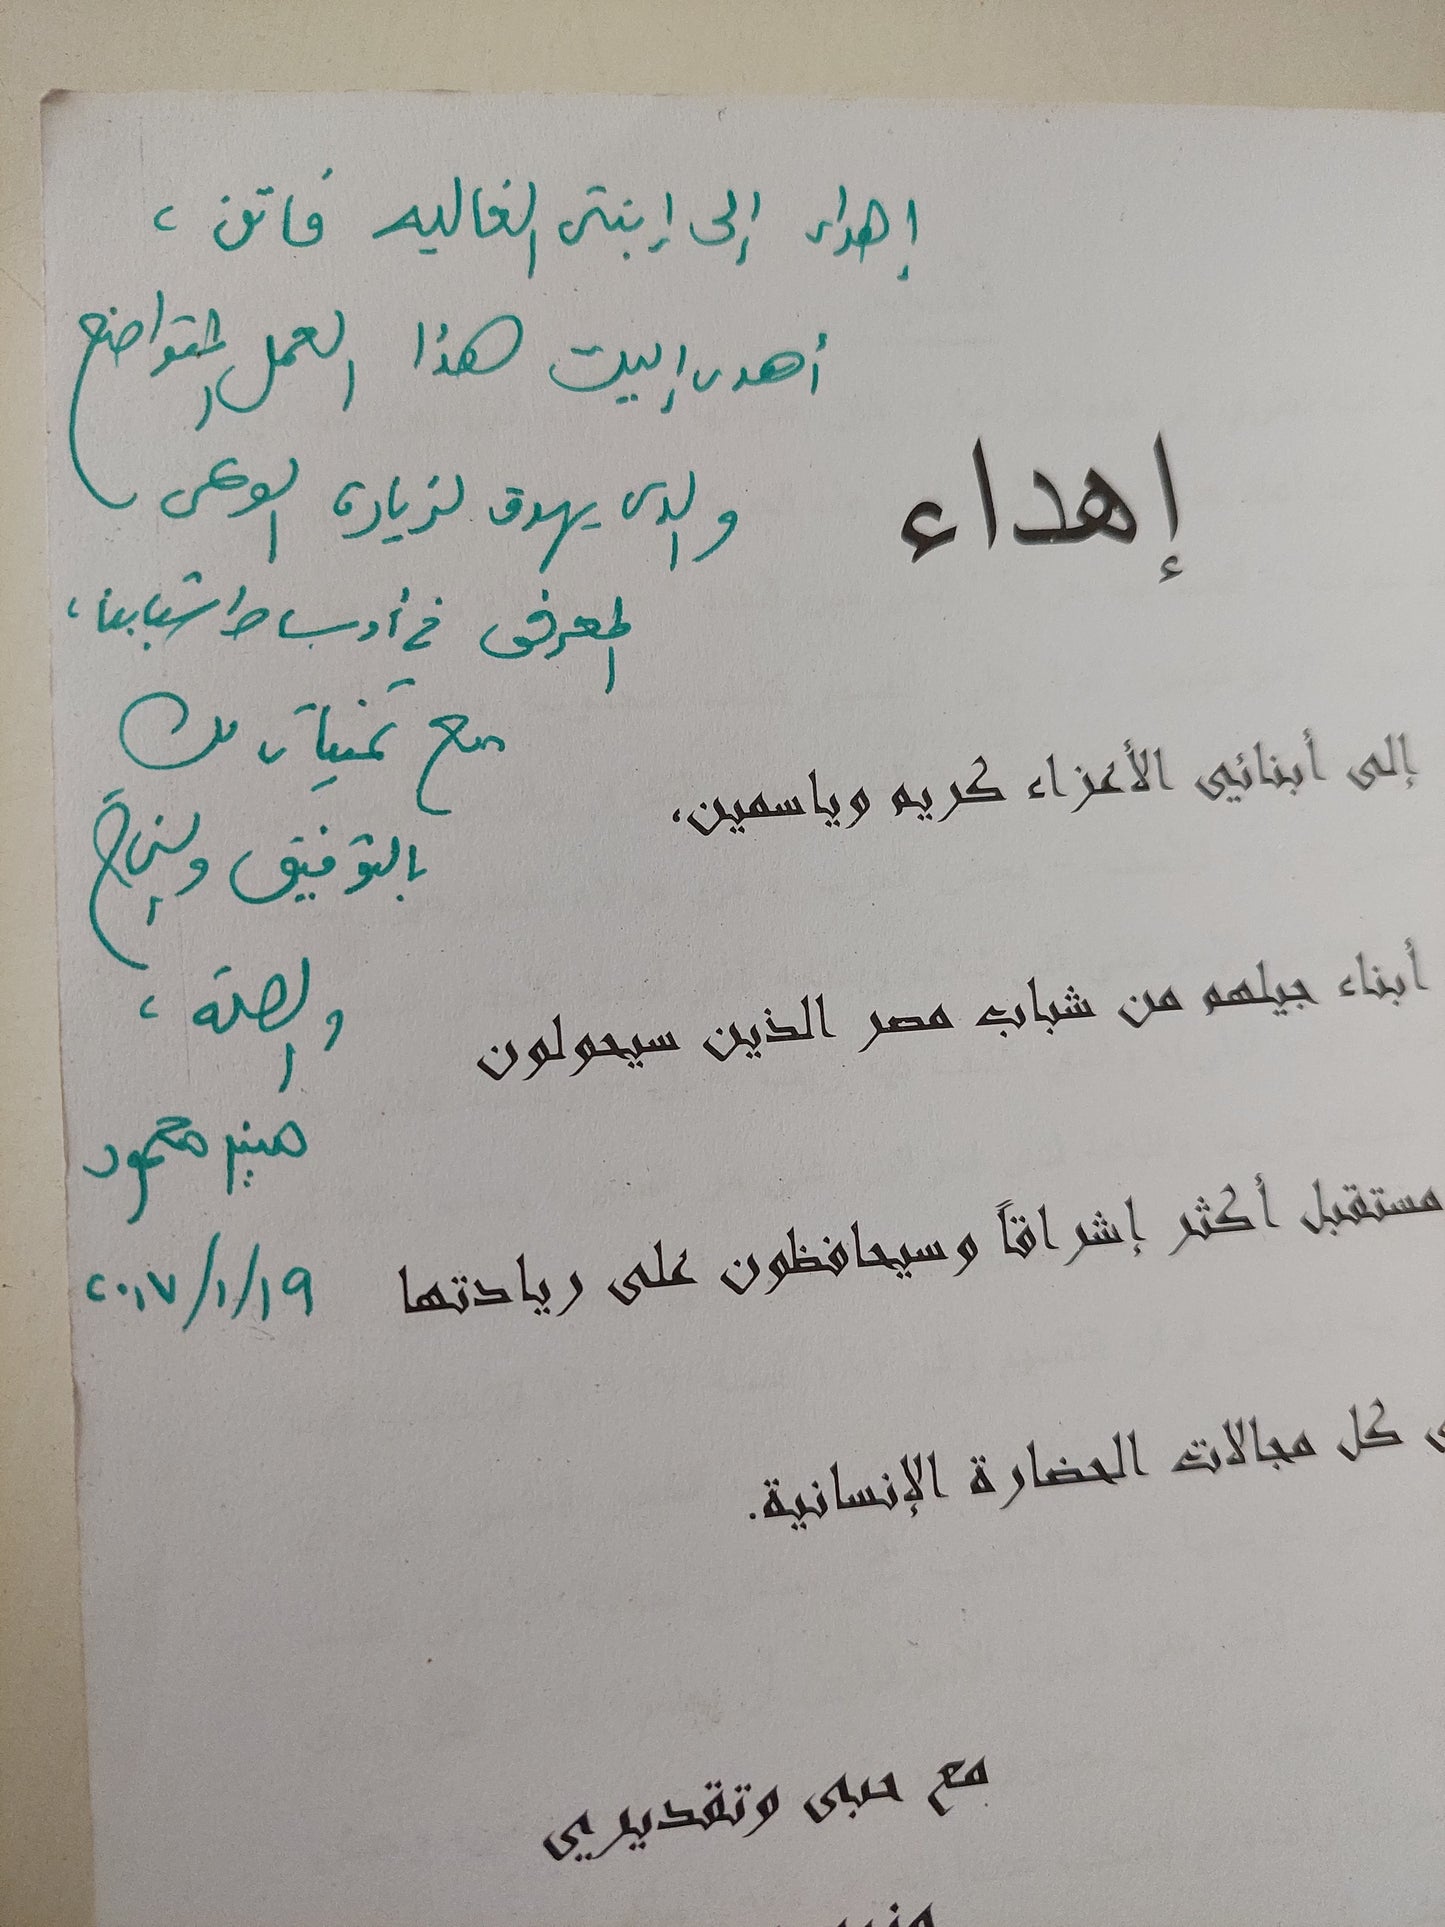 إهداء إلى إبنتى الغاليه فاتن ،
أهدى إليك هذا العمل المتواضع
والذى يهدف لزيادة الوعى
المعرفى فى أوساط شبابنا ،
مع تمنياتى لك
بالتوفيق والنجاح
والصحة ،
منير محمود
٢٠١٧/١/١٩
إهداء
إلى أبنائي الأعزاء كريم وياسمين،
أبناء جيلهم من شباب مصر الذين سيحولون
مستقبل أكثر إشراقاً وسيحافظون على ريادتها
كل مجالات الحضارة الإنسانية.
مع حبى وتقديري